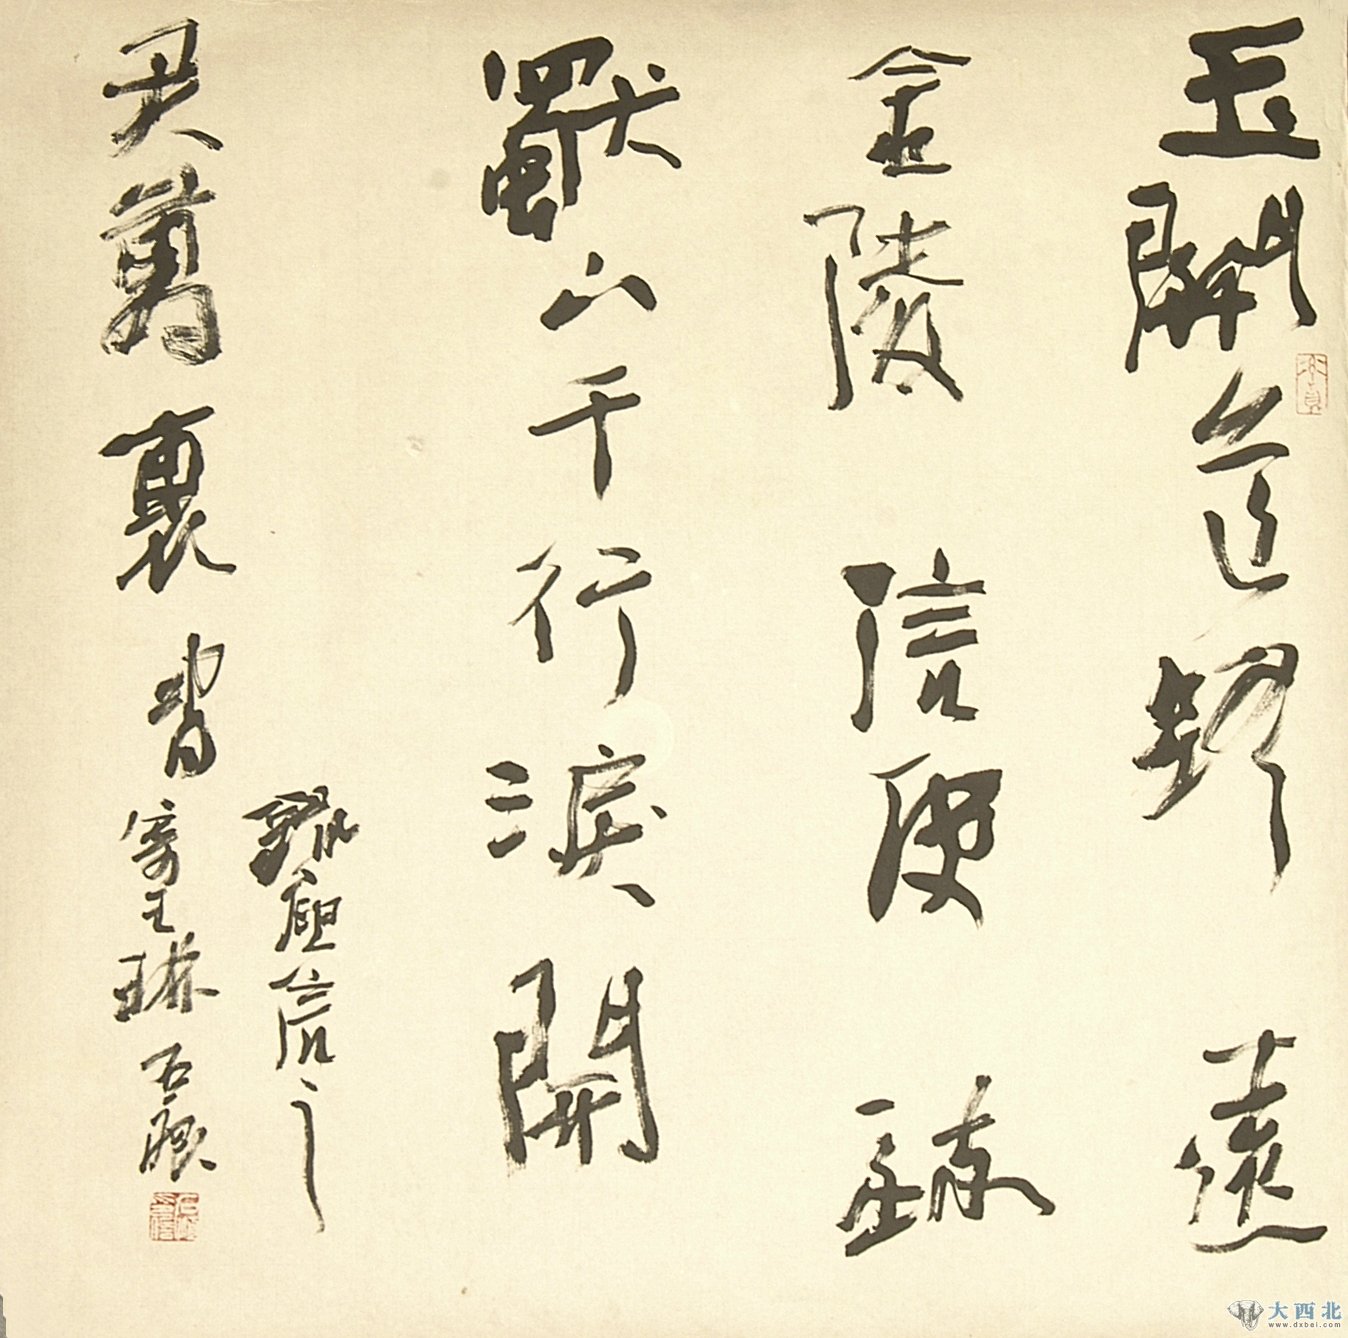 玉關道路遠
金陵信使疎
獨下千行淚開
君萬裏書
錄庾信之
寄王琳
大西北
www.dxbei.com